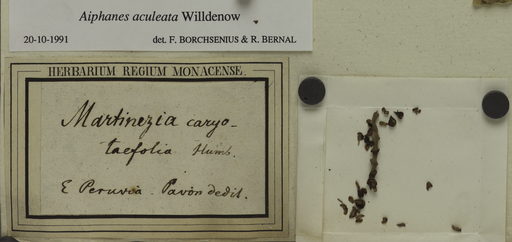 Aiphanes aculeata Willdenow
20-10-1991 det. F. BORCHSENIUS & R. BERNAL
HERBARIUM REGIUM MONACENSE.
Martinezia caryo-
taefolia Humb.
E Peruvia. Pavòn dedit.